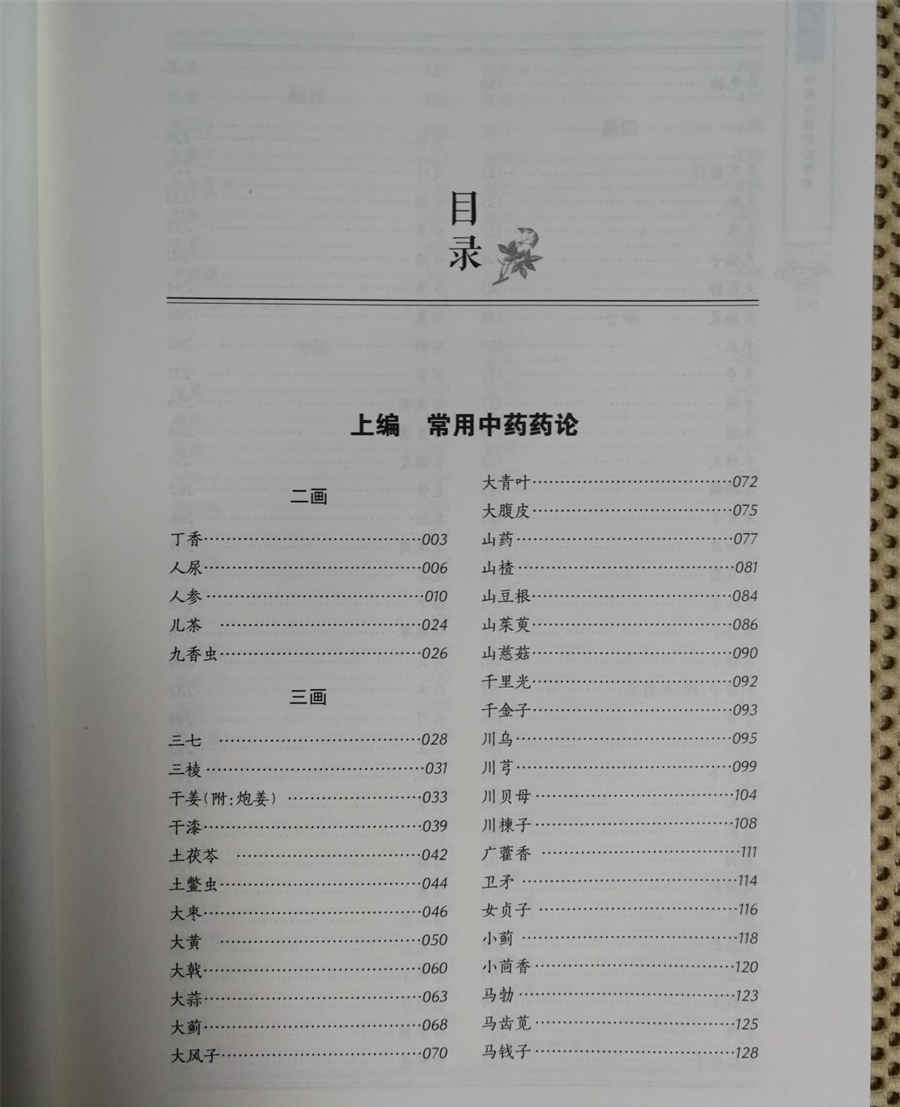 目
录
上编 常用中药药论
二画
丁香……………003
人尿……………006
人参……………010
儿茶……………024
九香虫……………026
三画
三七……………028
三棱……………031
干姜(附:炮姜)……………033
干漆……………039
土茯苓……………042
土鳖虫……………044
大枣……………046
大黄……………050
大戟……………060
大蒜……………063
大蓟……………068
大风子……………070
大青叶……………072
大腹皮……………075
山药……………077
山楂……………081
山豆根……………084
山茱萸……………086
山慈菇……………090
千里光……………092
千金子……………093
川乌……………095
川芎……………099
川贝母……………104
川楝子……………108
广藿香……………111
卫矛……………114
女贞子……………116
小蓟……………118
小茴香……………120
马勃……………123
马齿苋……………125
马钱子……………128